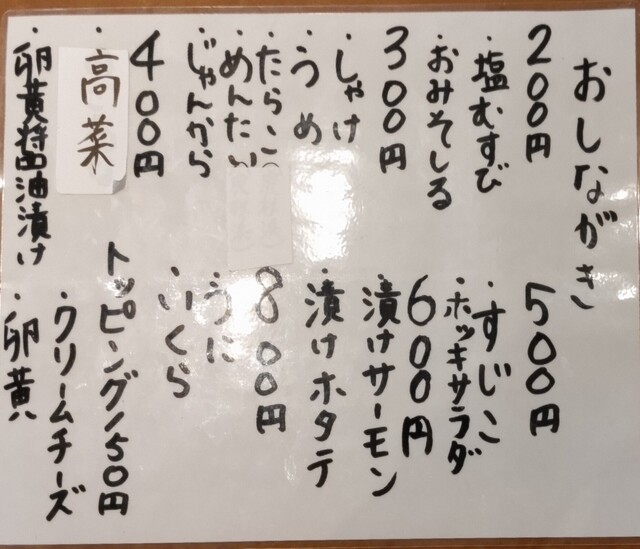 おしながき
200円
・塩むすび
・おみそしる
300円
・しゃけ
・うめ
・たらこ
・めんたい
・じゃんから
400円
・高菜
・卵黄醤油漬け
500円
・すじこ
・ホッキサラダ
600円
・漬けサーモン
・漬けホタテ
800円
・うに
・いくら
トッピング150円
・クリームチーズ
・卵黄